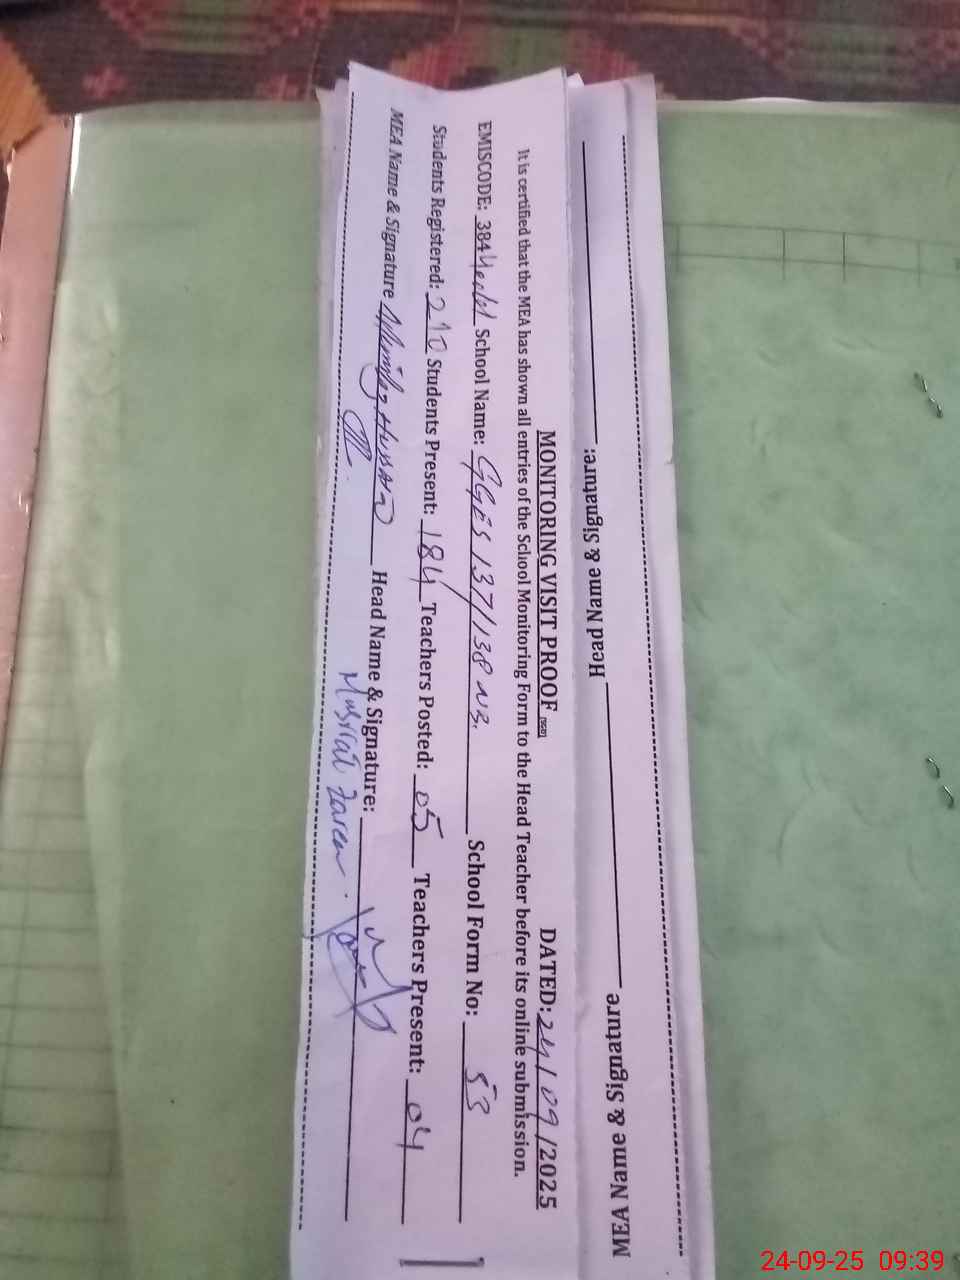 MONITORING VISIT PROOF DATED: 24/09/2025
It is certified that the MEA has shown all entries of the School Monitoring Form to the Head Teacher before its online submission.
EMISCODE: School Name: GGES 137/138 NB. School Form No: 53
Students Registered: 210 Students Present: 184 Teachers Posted: 05 Teachers Present: 04
MEA Name & Signature Head Name & Signature:
Head Name & Signature:
MEA Name & Signature
24-09-25 09:39